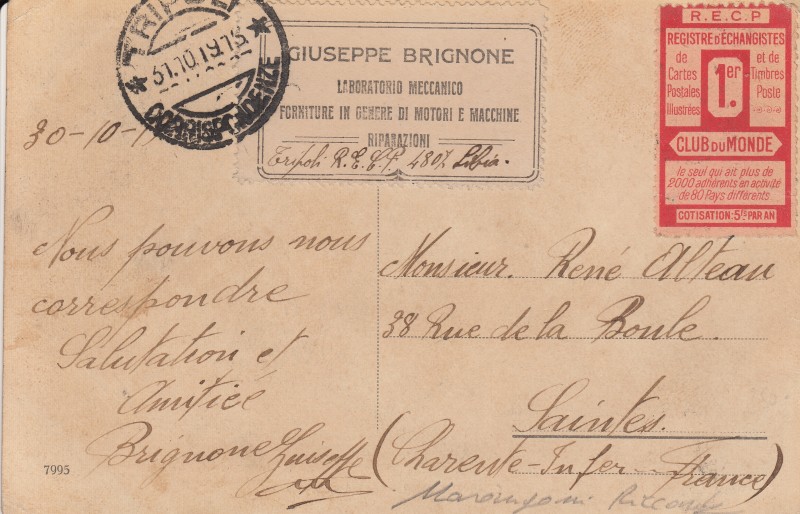 TRIPOLI
31.10.19.13
CORRISPONDENZE
GIUSEPPE BRIGNONE
LABORATORIO MECCANICO
FORNITURE IN GENERE DI MOTORI E MACCHINE
RIPARAZIONI
Tripoli R.E.C.P. 4807. Libia.
R.E.C.P
REGISTRE D'ÉCHANGISTES
de Cartes Postales Illustrées
1.er
et de Timbres Poste
CLUB DU MONDE
le seul qui ait plus de
2000 adhérents en activité
de 80 Pays différents
COTISATION: 5frs PAR AN
30-10-1
Nous pouvons nous
correspondre
Salutation et
Amitiée
Brignone
Monsieur. René Alteau
38 Rue de la Boule.
Saintes.
(Charente-Infer... France)
7995